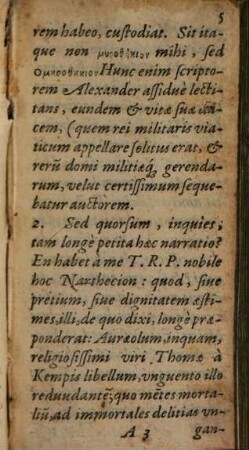 5
rem habeo, custodiat. Sit ita-
que non μυροθήκιον mihi, sed
Ομηροθήκιον Hunc enim scripto-
rem Alexander assiduè lecti-
tans, eundem & vitæ suæ du-
cem, (quem rei militaris via-
ticum appellare solitus erat, &
rerũ domi militiæq́; gerenda-
rum, velut certissimum seque-
batur auctorem.
2. Sed quorsum, inquies,
tam longè petita hæc narratio?
En habet à me T. R. P. nobile
hoc Narthecion: quod, siue
pretium, siue dignitatem æsti-
mes, illi, de quo dixi, longè præ-
ponderat: Aureolum, inquam,
religiosissimi viri, Thomæ à
Kempis libellum, vnguento illo
redundantẽ; quo mẽtes morta-
liũ, ad immortales delitias vn-
A 3 gan-